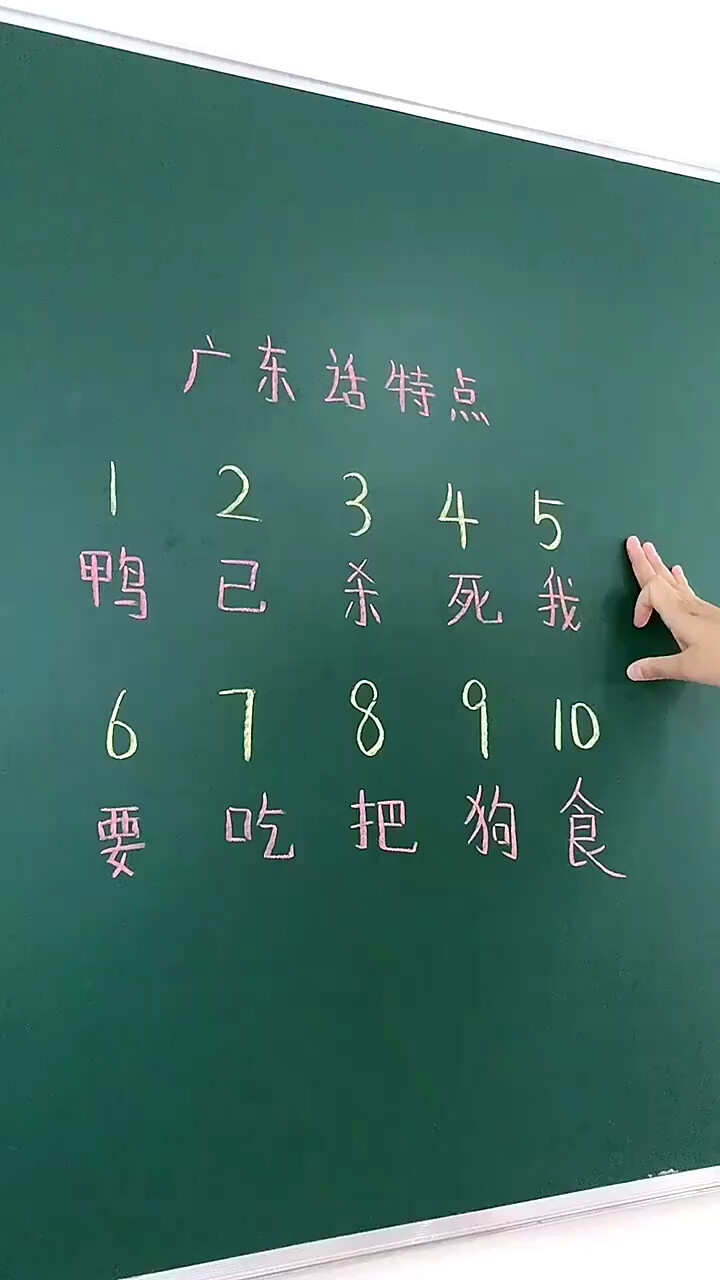 广东话特点
1 2 3 4 5
鸭 已 杀 死 我
6 7 8 9 10
要 吃 把 狗 食